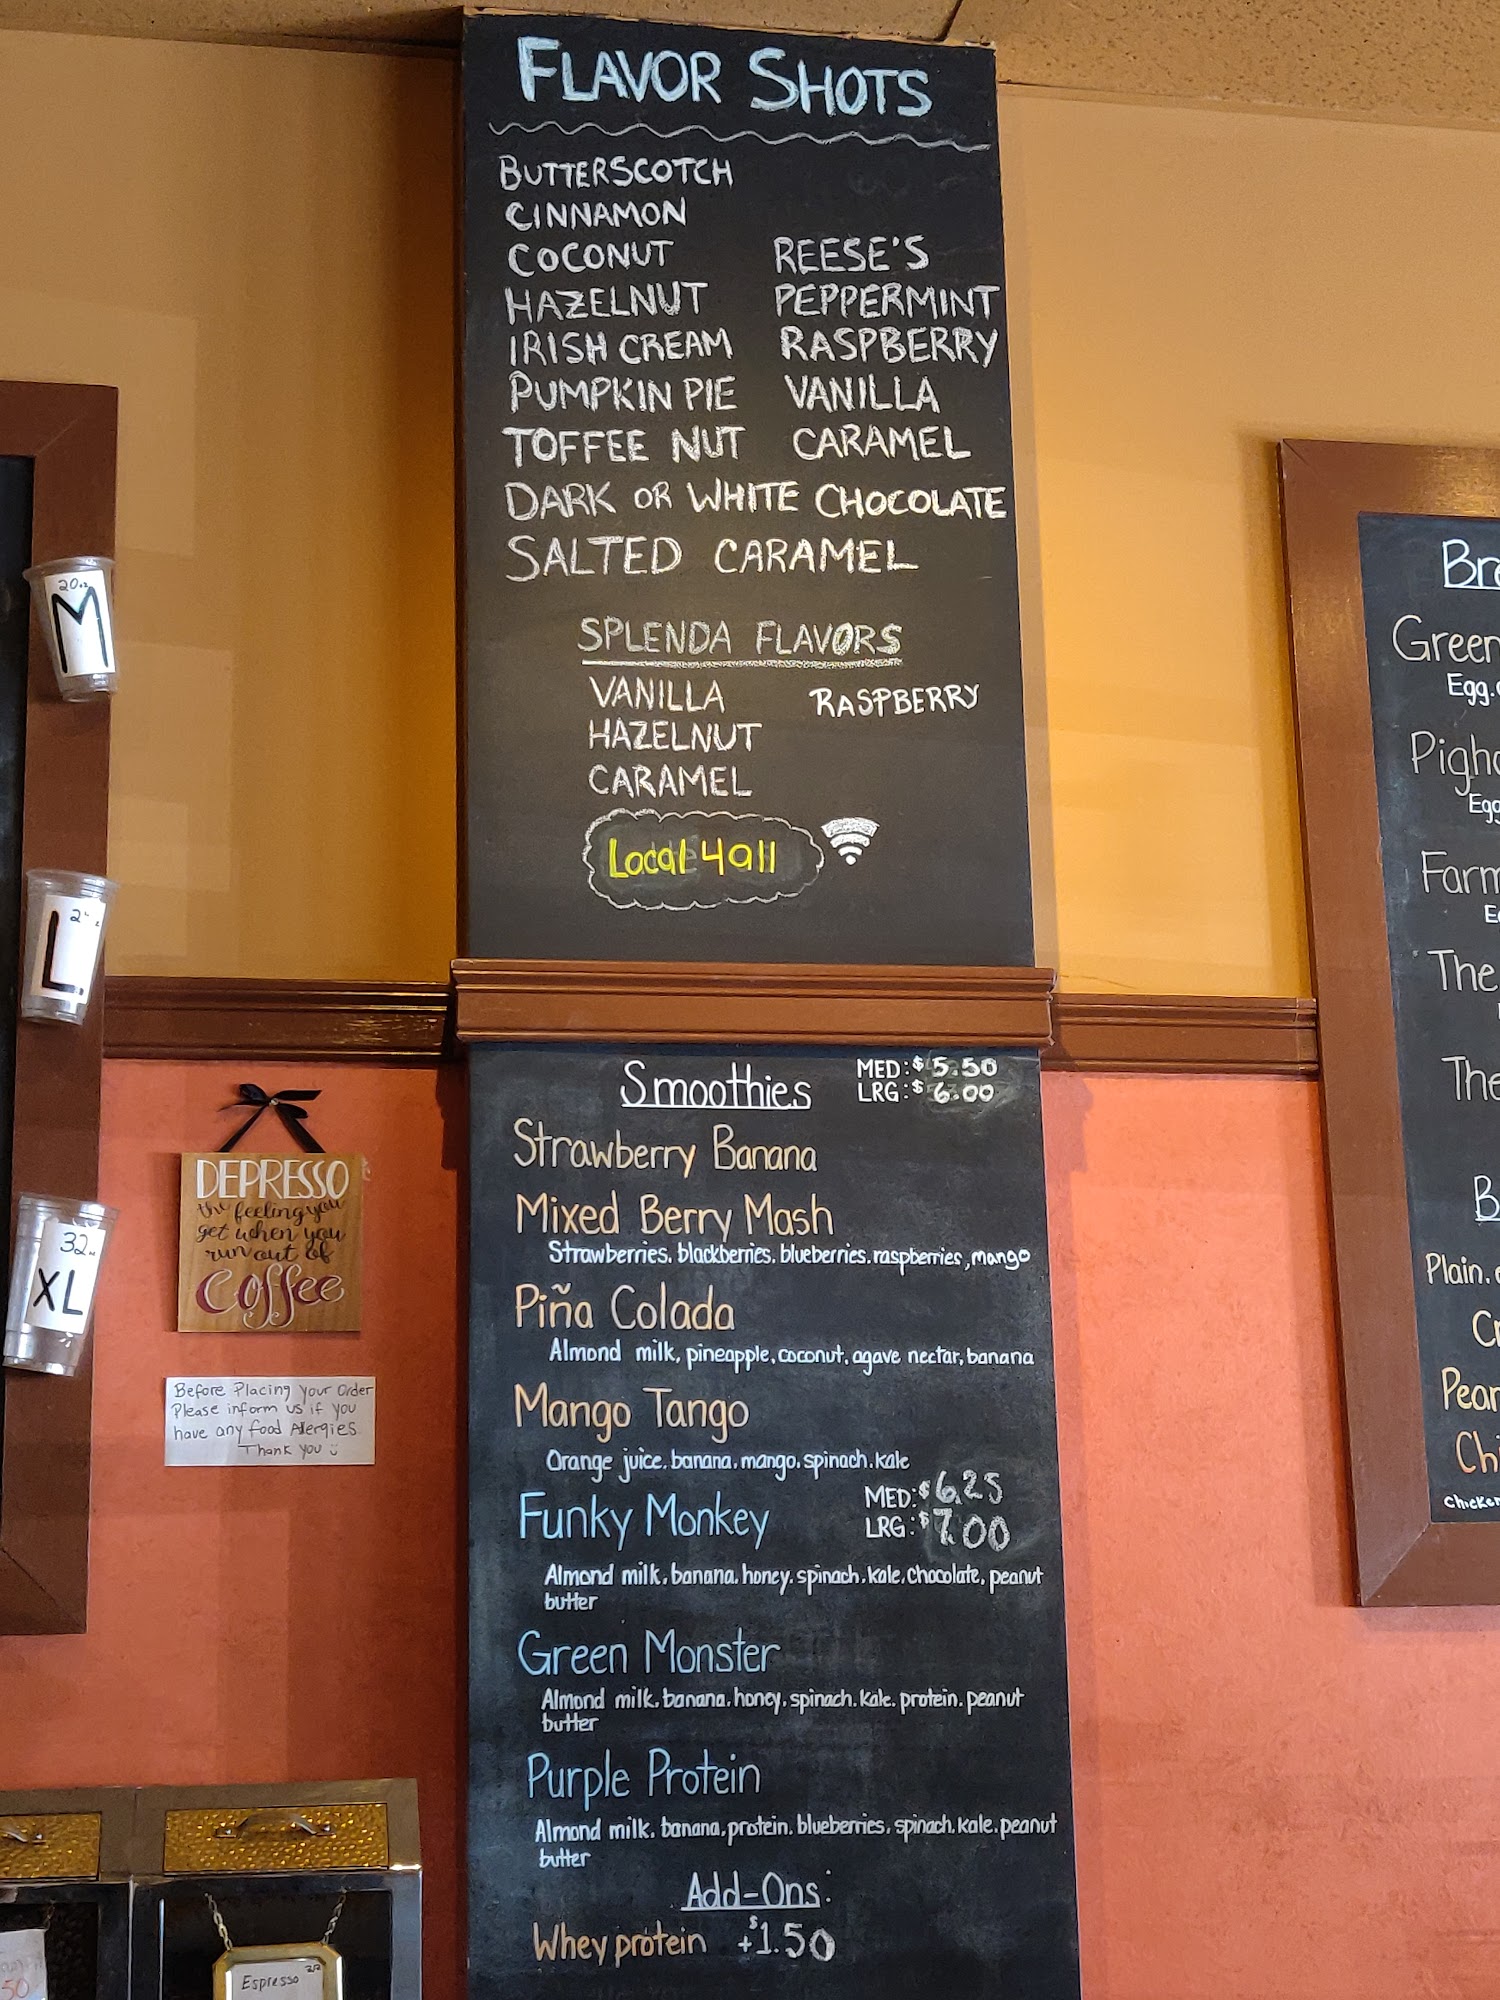 FLAVOR SHOTS
BUTTERSCOTCH
CINNAMON
COCONUT REESE'S
HAZELNUT PEPPERMINT
IRISH CREAM RASPBERRY
PUMPKIN PIE VANILLA
TOFFEE NUT CARAMEL
DARK OR WHITE CHOCOLATE
SALTED CARAMEL
SPLENDA FLAVORS
VANILLA RASPBERRY
HAZELNUT
CARAMEL
Local 4all
20oz
M
L
32oz
XL
DEPRESSO
the feeling you
get when you
run out of
Coffee
Before Placing your Order
Please inform us if you
have any food Allergies
Thank you
Smoothies
MED: $5.50
LRG: $6.00
Strawberry Banana
Mixed Berry Mash
Strawberries, blackberries, blueberries, raspberries, mango
Piña Colada
Almond milk, pineapple, coconut, agave nectar, banana
Mango Tango
Orange juice, banana, mango, spinach, kale
Funky Monkey
MED: $6.25
LRG: $7.00
Almond milk, banana, honey, spinach, kale, chocolate, peanut
butter
Green Monster
Almond milk, banana, honey, spinach, kale, protein, peanut
butter
Purple Protein
Almond milk, banana, protein, blueberries, spinach, kale, peanut
butter
Add-Ons:
Whey protein +$1.50
Espresso
50
Green
Egg,
Farm
The
The
B
Plain,